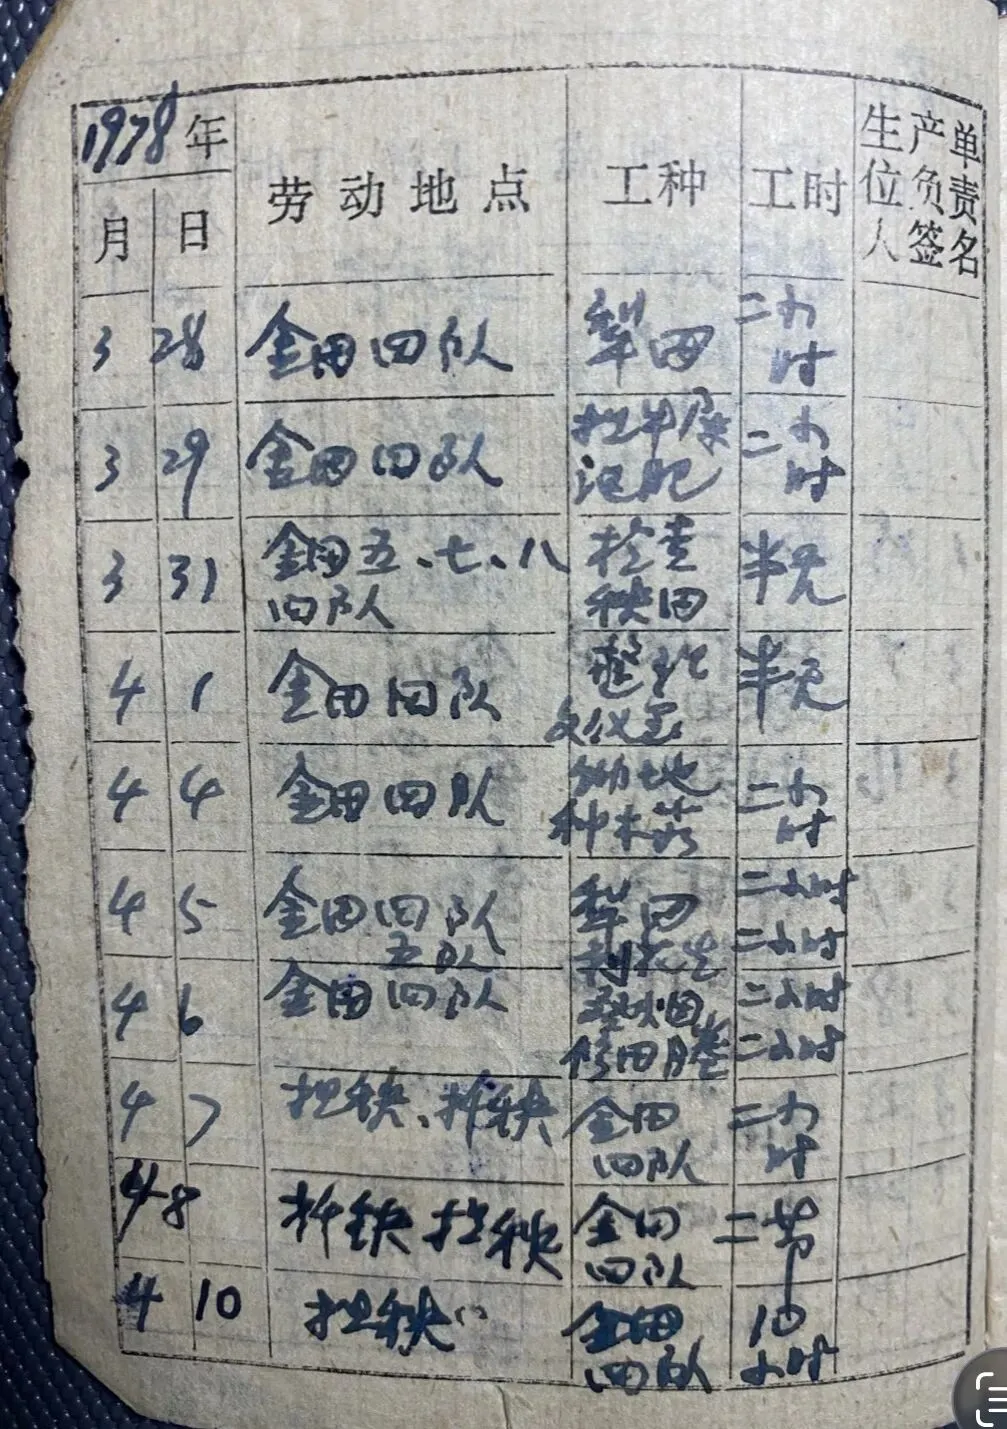 1978年
月 日 劳动地点 工种 工时 生产单位负责人签名
3 28 金田四队 犁田 二小时
3 29 金田四队 担牛尿 二小时
肥
3 31 金田五、七、八 检查 半天
四队 秧田
4 1 金田四队 整理 半天
文化室
4 4 金田四队 地 二小时
种木薯
4 5 金田四队 犁田 二小时
五队 花生 二小时
4 6 金田四队 烟 二小时
修田 二小时
4 7 担秧、 秧 金田 二小时
四队
4 8 秧 担秧 金田 二节
四队
4 10 担秧 金田 10
四队 小时